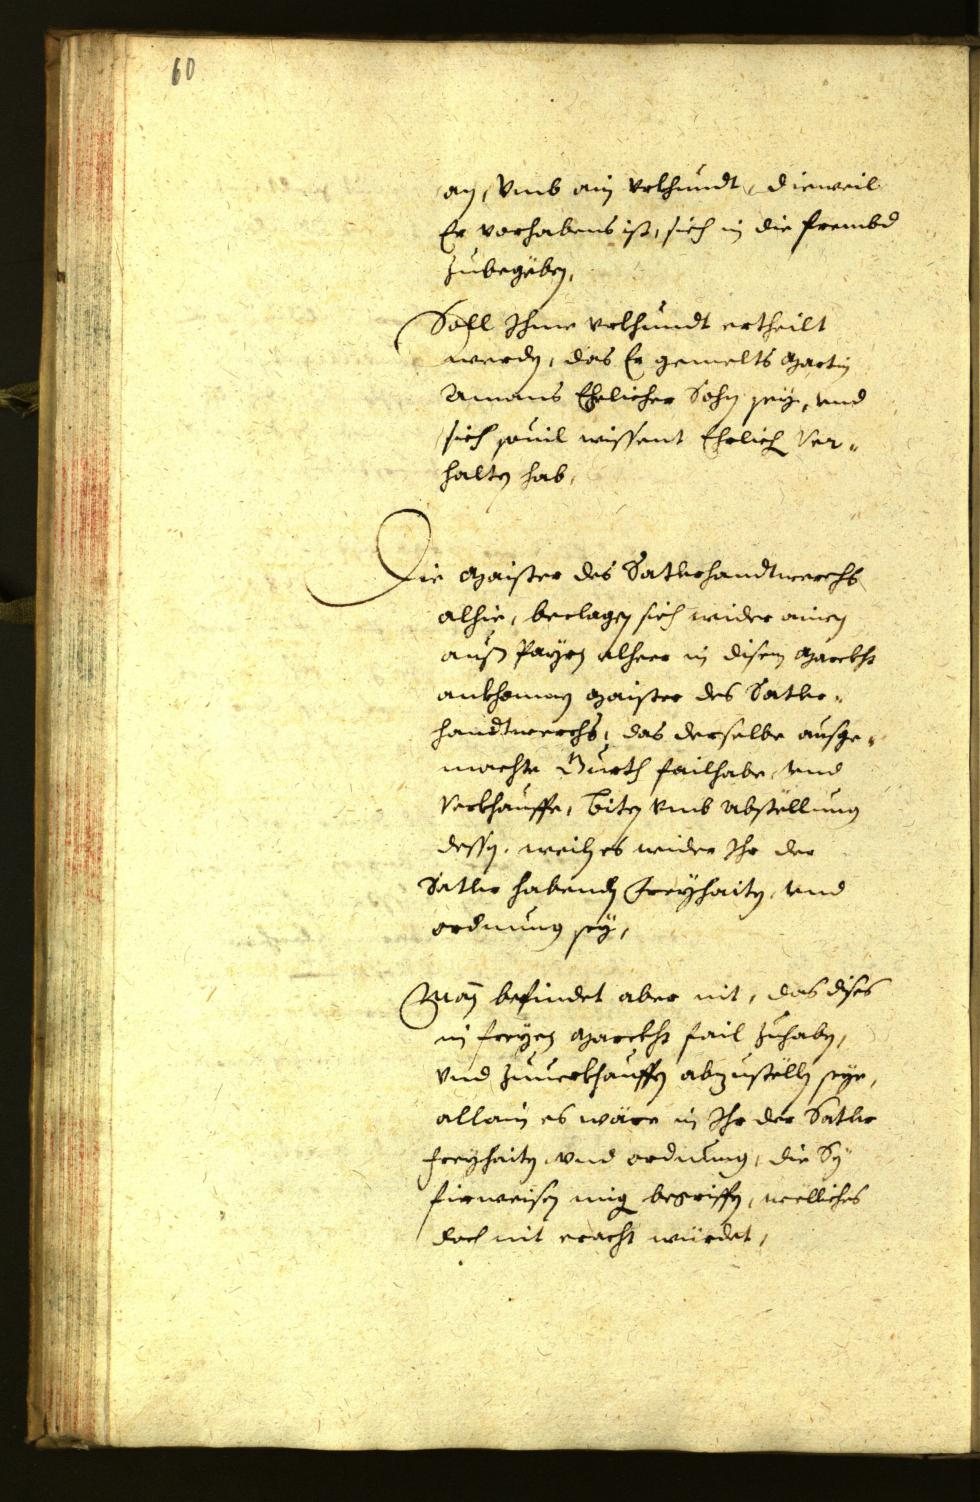 60
an, vmb ain vrkhundt, dieweil
Er vorhabens ist, sich in die frembd
zubegeben,
Soll Ihme vrkhundt ertheilt
werden, das Er gemelts Martin
Amans Ehelicher Sohn sey, vnd
sich souil wissent Ehrlich ver-
halten hab,
Die Maister des Satlerhandtwerchs
alhie, beclagen sich wider ainen
auß Payrn alheer in disem Marckht
ankhomnen Maister des Satler-
handtwerchs, das derselbe ausge-
machte Gurth failhabe, vnd
verkhauffe, biten vmb abstellung
dessen, weiln es wider Ihr der
Satler habenden Freyhaiten, vnd
ordnung sey,
Man befindet aber nit, das dises
in freyen Marckht fail zuhaben,
vnd zuuerkhauffen abzustellen seye,
allain es wäre in Ihr der Satler
freyhaiten vnd ordnung, die Sy
fürweisen mig begriffen, welliches
doch nit eracht würdet,